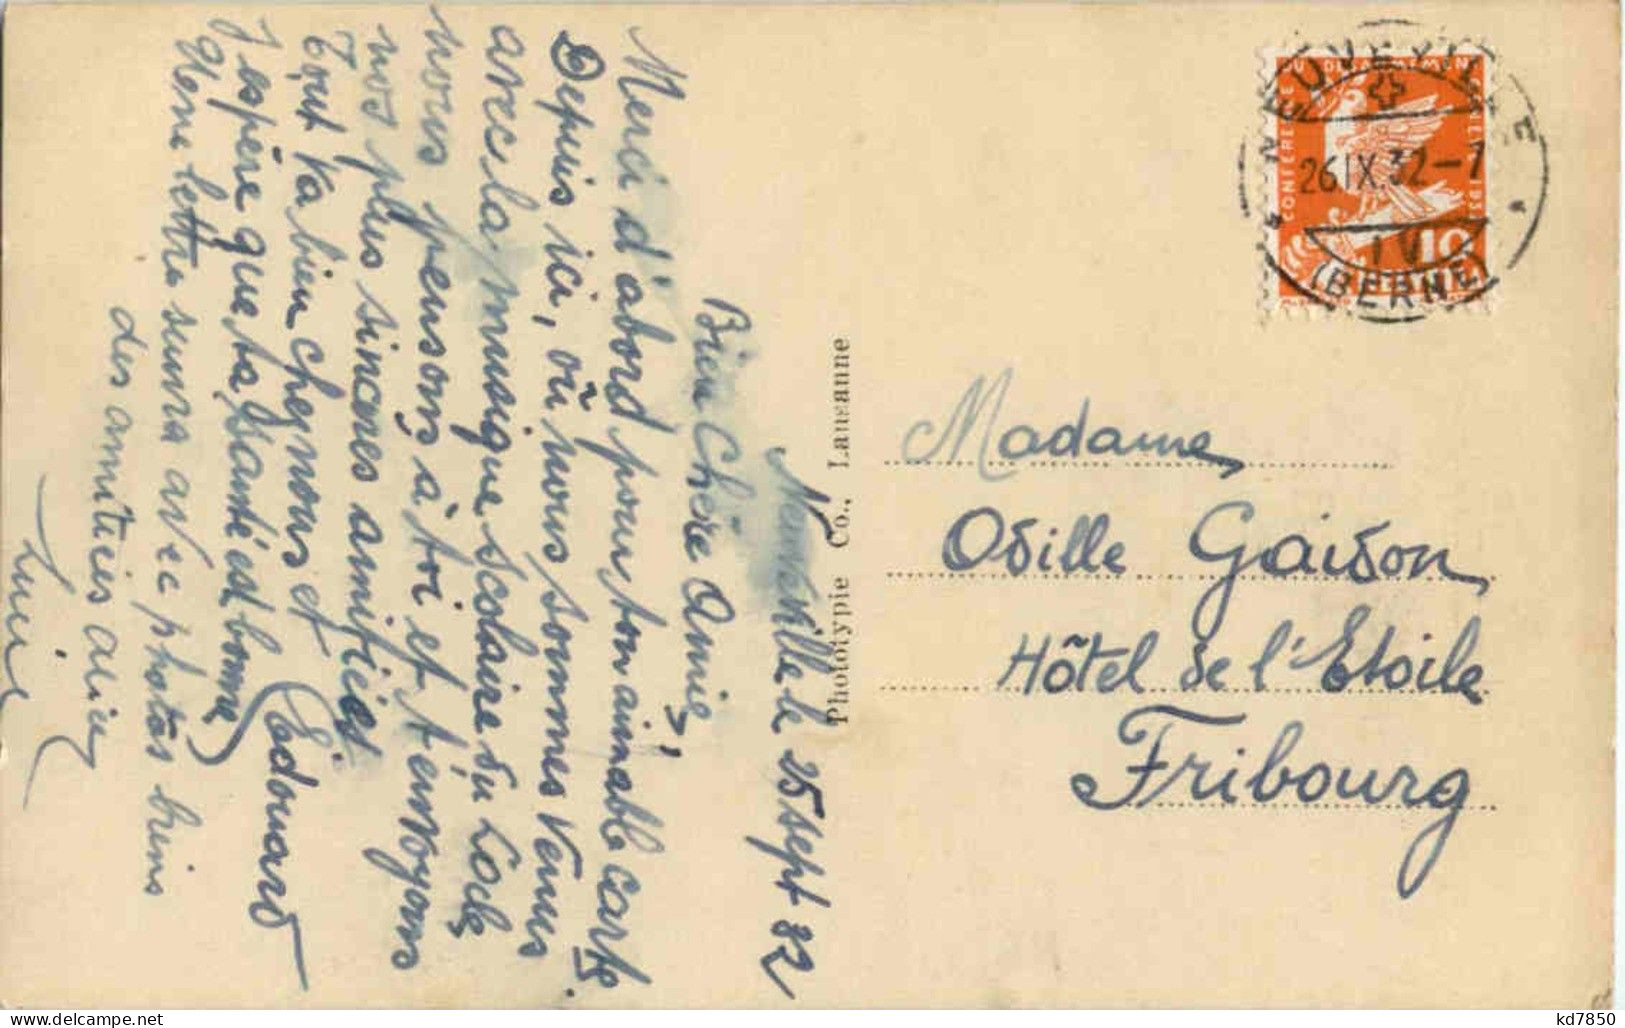 Neuveville le 25 sept 32
Bien Chère Amie,
Merci d'abord pour ton aimable carte,
Depuis ici, où nous sommes venus
avec la musique scolaire du Locle,
nous pensons à toi et t'envoyons
nos plus sincères amitiés.
Tout va bien chez nous et
j'espère que ta santé est bonne
Edouard
Une lettre suivra avec photos
des amitiés
Phototypie Co., Lausanne
NEUVEVILLE
26.IX.32-7
IV
(BERNE)
CONFERENCE DU DESARMEMENT GENEVE 1932
10
Madame
Odille Gaidon
Hôtel de l'Etoile
Fribourg
kd7850